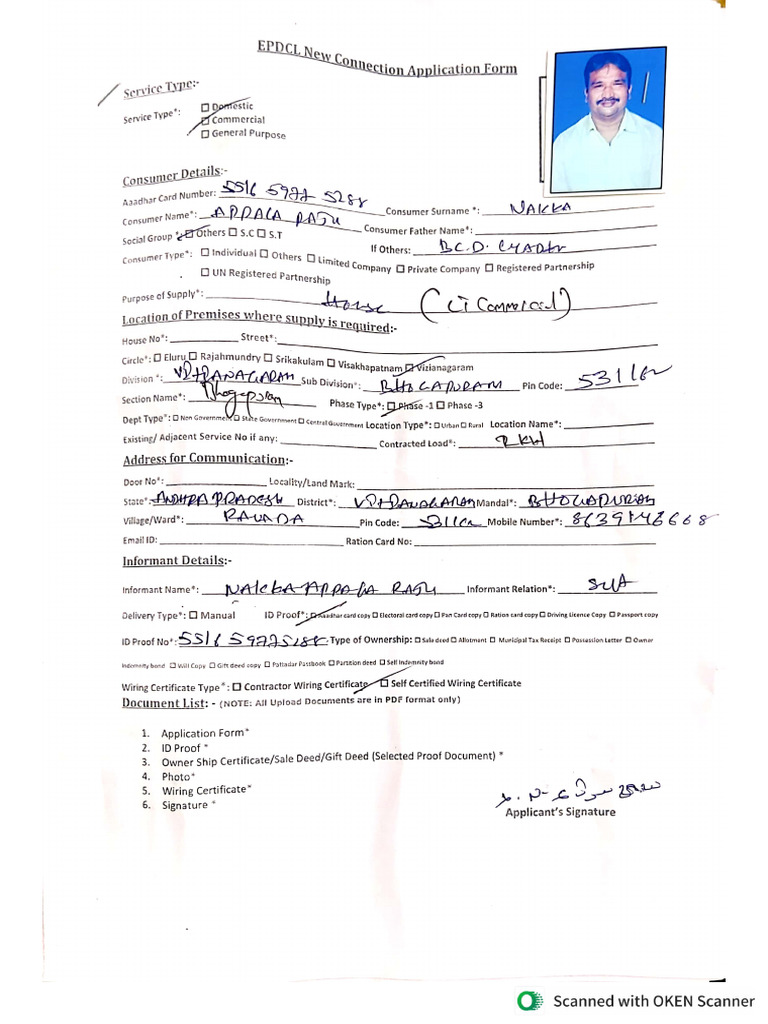 EPDCL New Connection Application Form
Service Type:-
Service Type*: ☐ Domestic
☐ Commercial
☐ General Purpose
Consumer Details:-
Aaadhar Card Number: 5516 5977 5288 Consumer Surname *: NAKKA
Consumer Name*: APPALA RAJU Consumer Father Name*:
Social Group *: ☐ Others ☐ S.C ☐ S.T If Others: BC.D.
Consumer Type*: ☐ Individual ☐ Others ☐ Limited Company ☐ Private Company ☐ Registered Partnership
☐ UN Registered Partnership
Purpose of Supply*: House (LT Commercial)
Location of Premises where supply is required:-
House No*: Street*:
Circle*: ☐ Eluru ☐ Rajahmundry ☐ Srikakulam ☐ Visakhapatnam ☐ Vizianagaram
Division *: Sub Division*: BHOGAPURAM Pin Code:
Section Name*: Bhogapuram Phase Type*: ☐ Phase -1 ☐ Phase -3
Dept Type*: ☐ Non Government ☐ State Government ☐ Central Government Location Type*: ☐ Urban ☐ Rural Location Name*:
Existing/ Adjacent Service No if any: Contracted Load*: 2 KW
Address for Communication:-
Door No*: Locality/Land Mark:
State*: ANDHRA PRADESH District*: Mandal*:
Village/Ward*: RAVADA Pin Code: Mobile Number*:
Email ID: Ration Card No:
Informant Details:-
Informant Name*: NAKKA APPALA RAJU Informant Relation*: Self
Delivery Type*: ☐ Manual ID Proof*: ☐ Aaadhar card copy ☐ Electoral card copy ☐ Pan Card copy ☐ Ration card copy ☐ Driving Licence Copy ☐ Passport copy
ID Proof No*: 5516 5977 5288 Type of Ownership: ☐ Sale deed ☐ Allotment ☐ Municipal Tax Receipt ☐ Possession Letter ☐ Owner
Indemnity bond ☐ Will Copy ☐ Gift deed copy ☐ Pattadar Passbook ☐ Partition deed ☐ Self Indemnity bond
Wiring Certificate Type *: ☐ Contractor Wiring Certificate ☐ Self Certified Wiring Certificate
Document List: - (NOTE: All Upload Documents are in PDF format only)
1. Application Form*
2. ID Proof *
3. Owner Ship Certificate/Sale Deed/Gift Deed (Selected Proof Document) *
4. Photo*
5. Wiring Certificate*
6. Signature *
Applicant's Signature
Scanned with OKEN Scanner